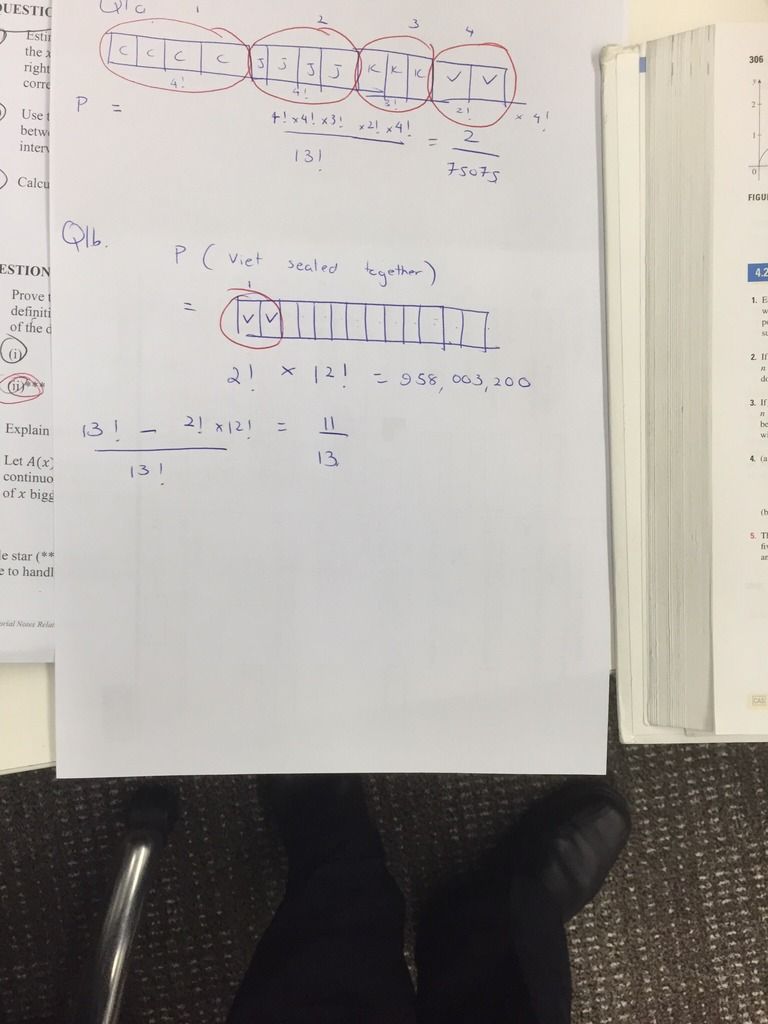 Q1a
1 2 3 4
C C C C J J J J K K K V V
4! 4! 3! 2! × 4!
P = 4! × 4! × 3! × 2! × 4! / 13! = 2 / 75075
Q1b.
P ( Viet sealed together)
1
= V V
2! × 12! = 958,003,200
13! - 2! × 12! / 13! = 11 / 13
QUESTIO
Esti
the x
right
corre
Use t
betw
interv
Calcu
ESTION
Prove t
definiti
of the d
(i)
(ii)***
Explain
Let A(x)
continuo
of x bigg
le star (**
e to handl
orial Notes Relat
306
y
2
1
0
FIGU
4.2
1. E
w
p
su
2. If
n
de
3. If
n
be
wi
4. (a
(b
5. Th
fiv
an
CAS